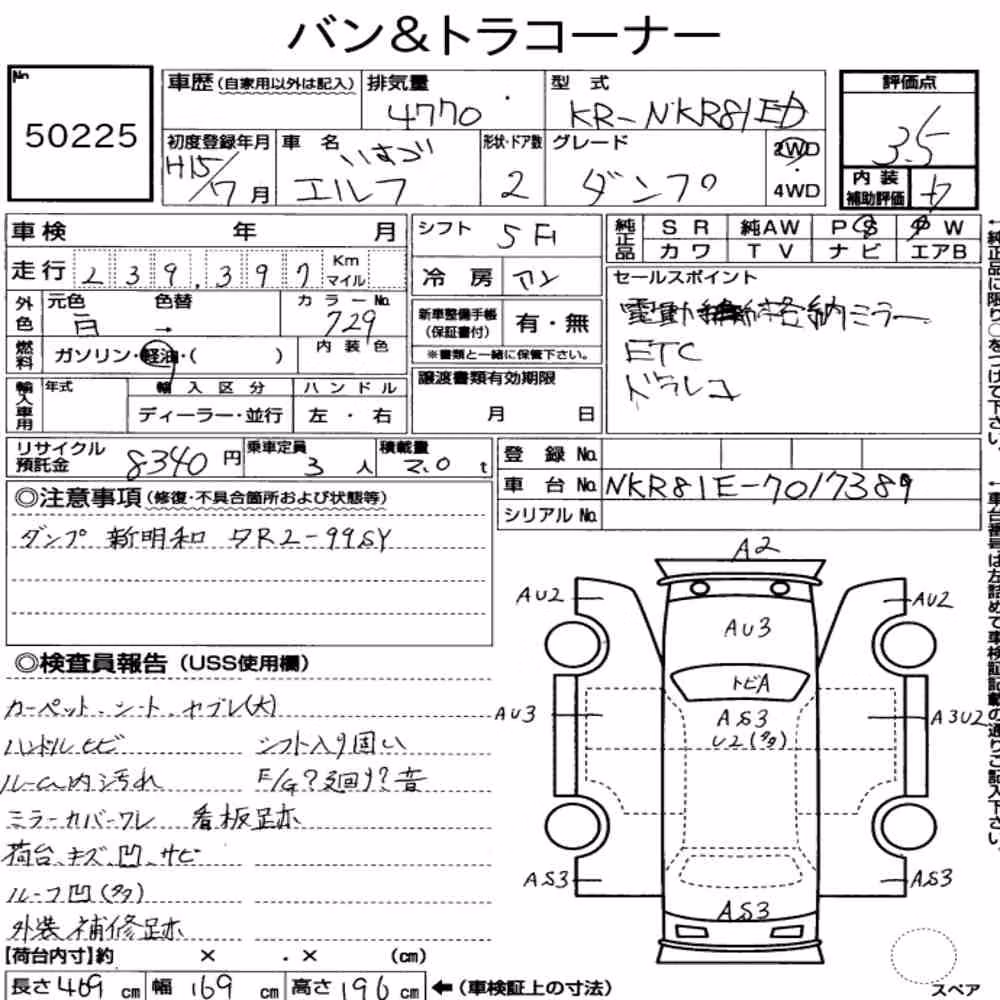 バン&トラコーナー
No.
50225
車歴(自家用以外は記入) 排気量 4770 型式 KR-NKR81ED
初度登録年月 H15/7月 車名 いすゞ エルフ 形状・ドア数 2 グレード ダンプ 2WD 4WD
評価点 3.5
内装補助評価
車検 年 月
走行 239,397 Km マイル
外色 元色 白 色替 → カラーNo. 729
燃料 ガソリン・軽油・( ) 内装色
輸入車用 年式 輸入区分 ハンドル
ディーラー・並行 左・右
シフト 5F
冷房
新車整備手帳(保証書付) 有・無
※書類と一緒に保管下さい。
譲渡書類有効期限
月 日
純正品 SR 純AW PS PW
カワ TV ナビ エアB
セールスポイント
電動格納ミラー
ETC
ドラレコ
←純正品に限り○をつけて下さい。
リサイクル預託金 8340円 乗車定員 3人 積載量 2.0t
登録No.
車台No. NKR81E-7017389
シリアルNo.
←車台番号は左詰めで車検証記載の通りご記入下さい。
◎注意事項(修復・不具合箇所および状態等)
ダンプ 新明和 DR2-99SY
◎検査員報告(USS使用欄)
カーペット、シート、ヤブレ(大)
ハンドルヒビ シフト入り固い
ルーム内汚れ E/G?廻り?音
ミラーカバーワレ 看板跡
荷台、キズ、凹、サビ
ルーフ凹(多)
外装 補修跡
【荷台内寸】約 × . × (cm)
長さ469cm 幅169cm 高さ196cm ←(車検証上の寸法)
A2
AU2 AU2
AU3
トビA
AU3 AS3 A3U2
U2(多)
AS3 AS3
AS3
スペア